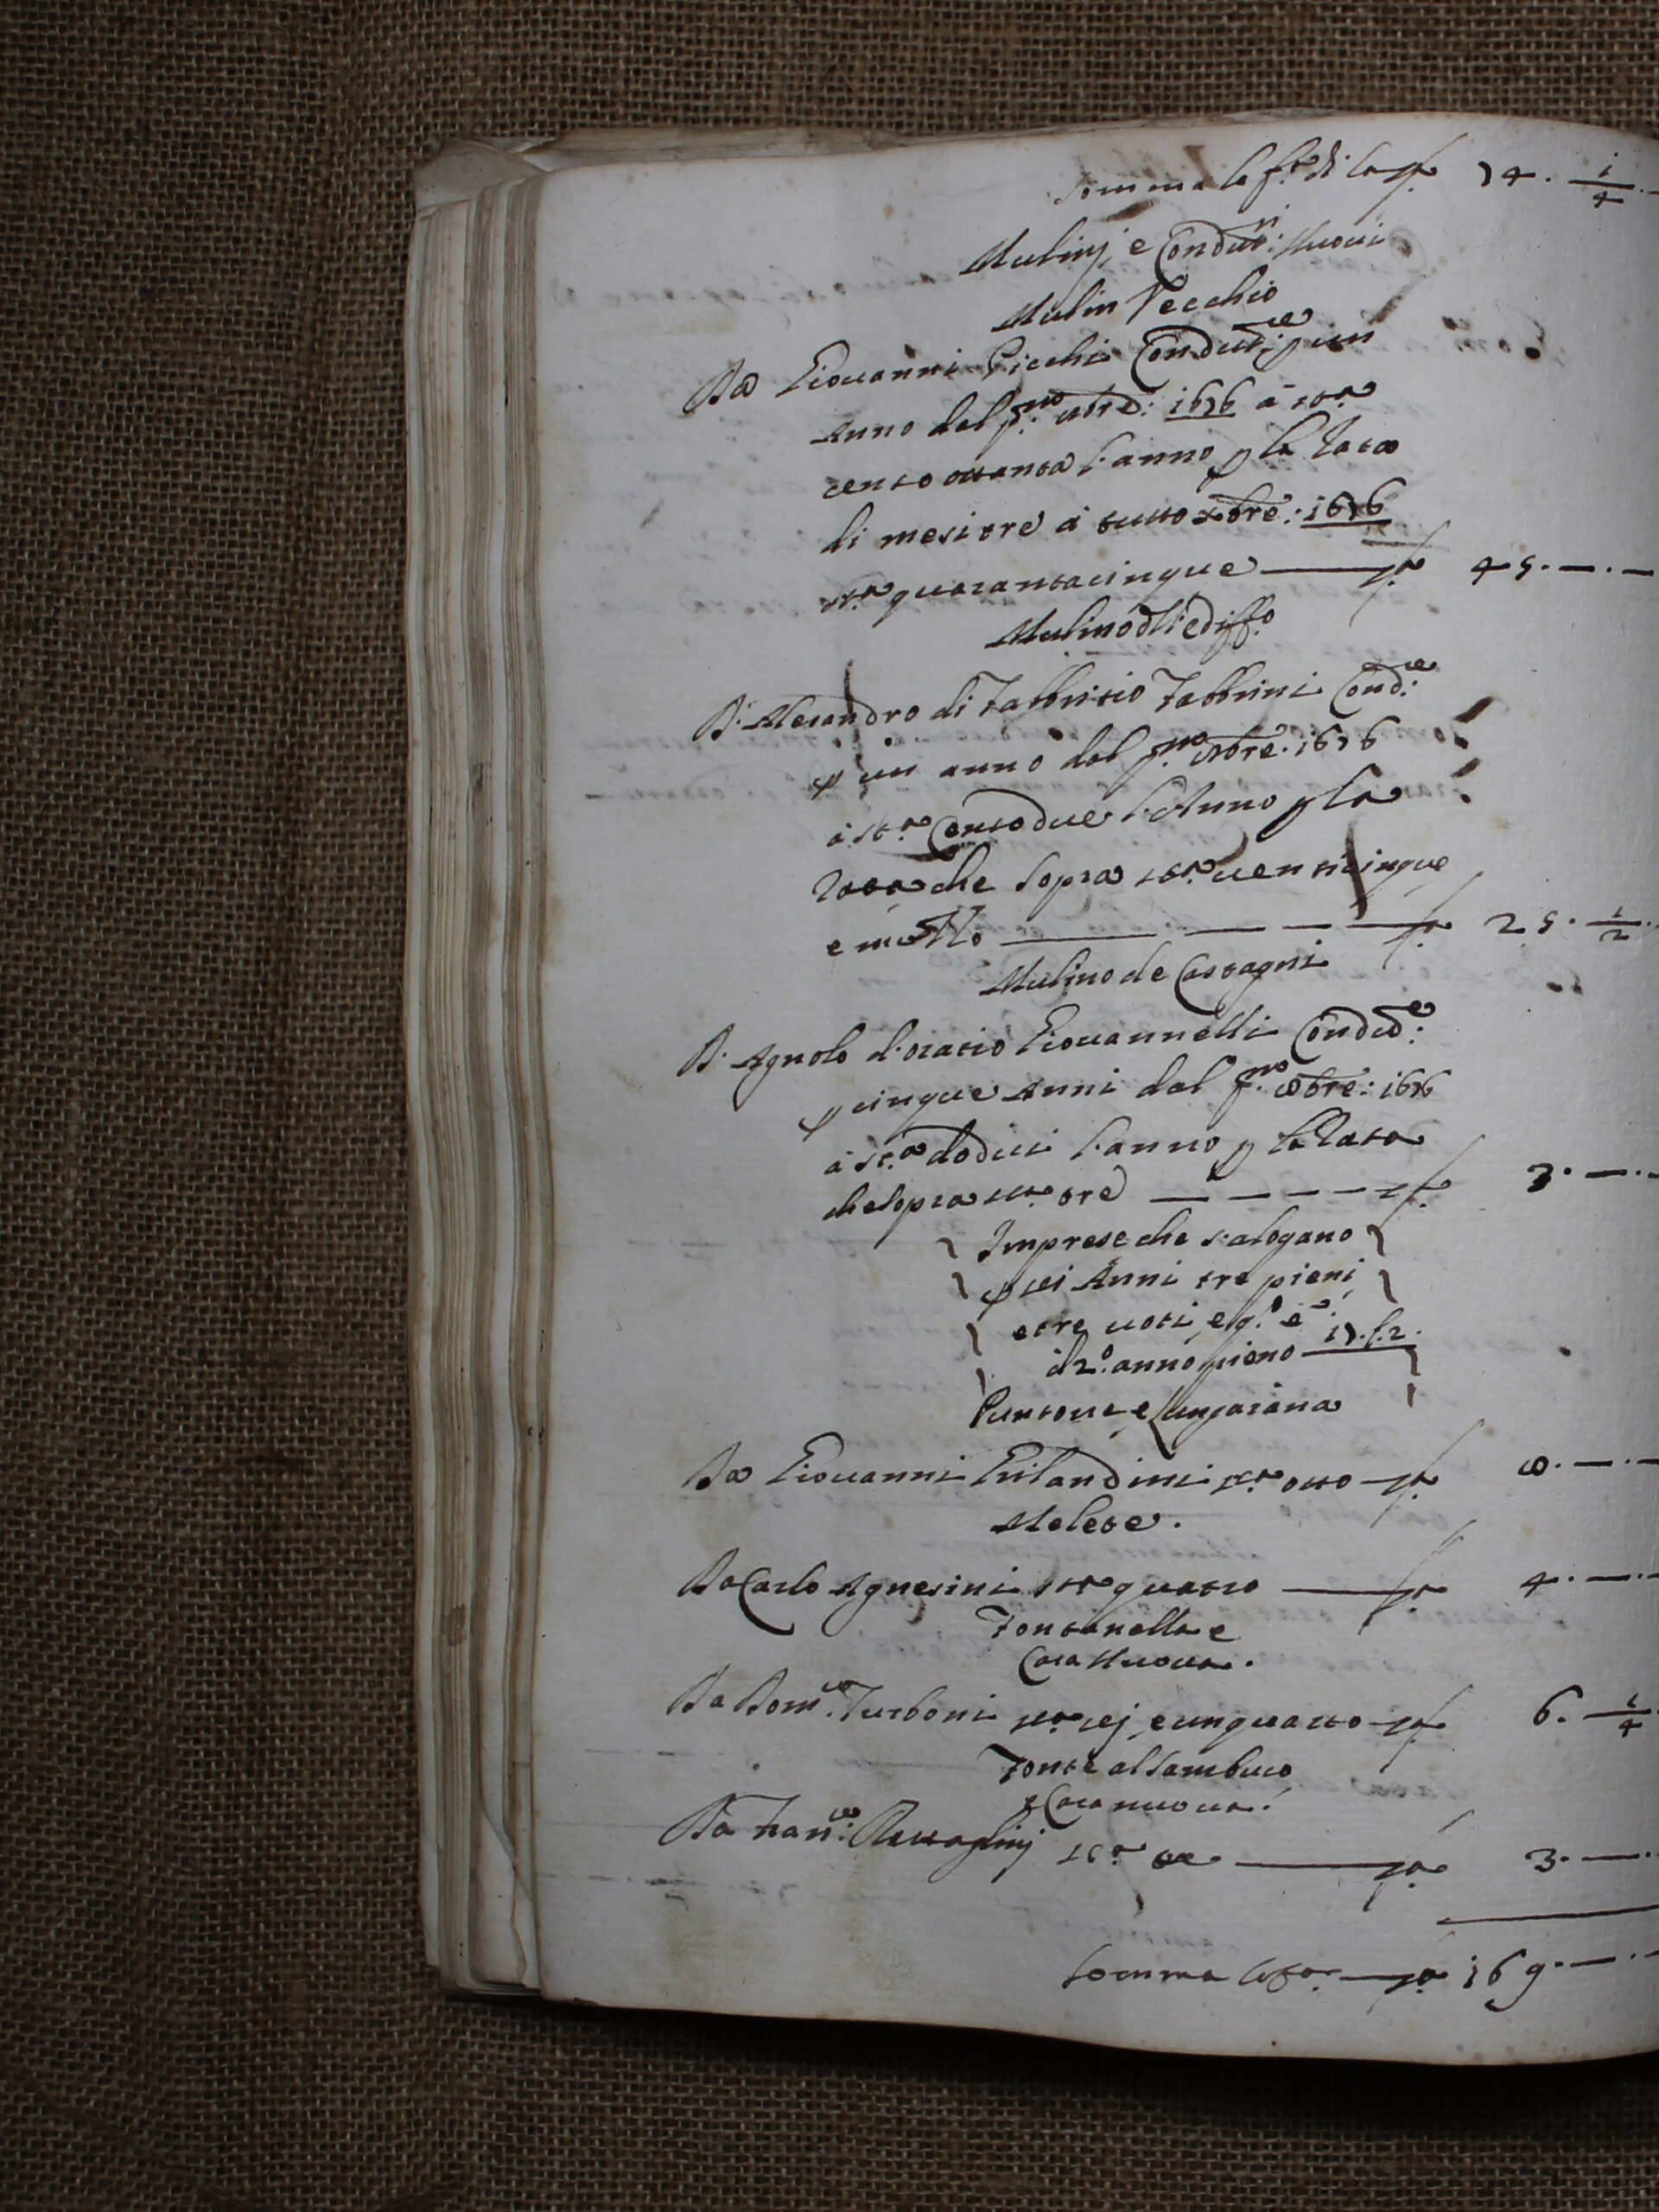 Somma la f.ta di la 74. 1/4. —
Mulinj, e Condut.ri: Nuoui
Mulin Vecchio
Da Giouanni Picchi Condut.re p un
Anno dal p.mo 9bre: 1676 à st.a
cento ottanta l'anno p la rata
di mesi tre à tutto Xbre: 1676
st.a quarantacinque — 45. —. —
Mulino dli ediff.o
D. Alesandro di Fabbritio Fabbrini Cond.re
p un anno dal p.mo 8bre. 1676
à st.a Centodue l'Anno p la
Rata che sopra st.a uenticinque
e mezzo — — — — 25. 1/2.
Mulino de Castagni
D. Agnolo d'oratio Giouannelli Condut.e
p cinque Anni dal p.mo 8bre: 1676
à st.a dodici l'anno p la Rata
che sopra st.a tre — — — — 3. —. —
Imprese che s'alogano
p sei Anni tre pieni
e tre uoti, e q.o è
il 2.o anno pieno
Puntone e Lungaiana
Da Giouanni Grilandini st.a otto — 8. —. —
Melete.
Da Carlo Agnesini st.a quatro — 4. —. —
Fontanella e
Casa Nuoua.
Da Dom.co Turboni st.a sej, e un quarto — 6. 1/4
Fonte al Sambuco
e Casa nuoua.
Da Fran.co st.a tre — 3. —.
Somma — 169. —. —